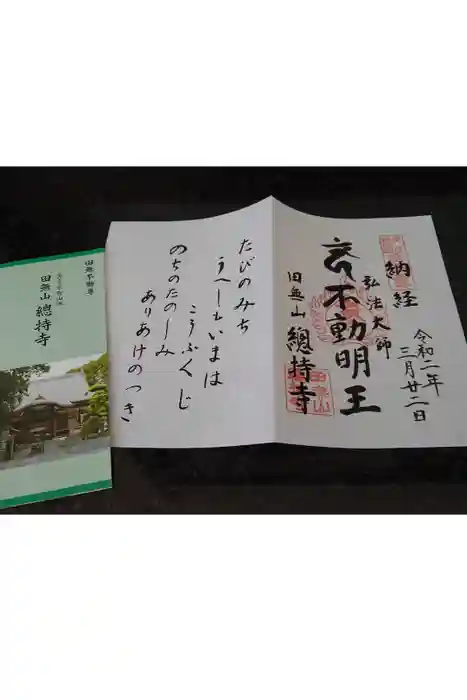 田無不動尊
田無山 總持寺
令和二年
三月廿二日
納経
弘法大師
不動明王
田無山 總持寺
たびのみち
うへしもいまは
こうふくじ
のちのたのしみ
ありあけのつき